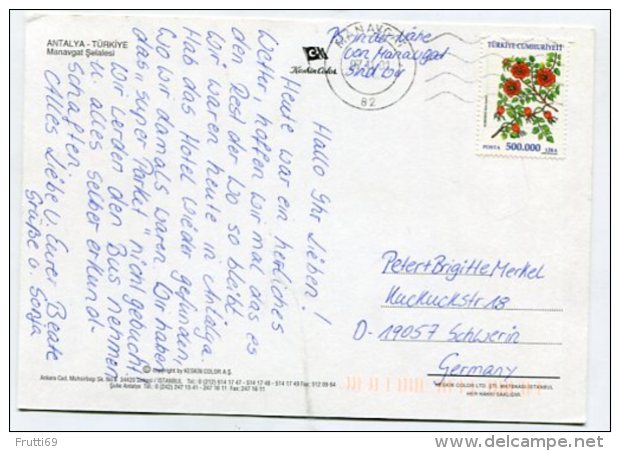 ANTALYA - TÜRKİYE
Manavgat Şelalesi
Keskin Color
MANAVGAT
82
P.S. in der Nähe
von Manavgat
sind wir
TÜRKİYE CUMHURİYETİ
POSTA 500.000 LİRA
Hallo Ihr Lieben!
Heute war ein herrliches
Wetter, hoffen wir mal das es
den Rest der Wo so bleibt.
Wir waren heute in Antalya.
Hab das Hotel wieder gefunden,
wo wir damals waren. Wir haben
das „super Paket" nicht gebucht
Wir werden den Bus nehmen
u. alles selber erkund-
schaften.
Alles Liebe u. Eurer Beate
Grüße v. Sonja
Peter+Brigitte Merkel
Kuckuckstr 18
D-19057 Schwerin
Germany
© Copyright by KESKIN COLOR A.Ş.
Ankara Cad. 34420 İSTANBUL Tel: 0 (212) 514 17 47 - 514 17 48 - 514 17 49 Fax: 512 09 64
Şube Antalya Tel: 0 (242) 247 15 41 - 247 16 11 Fax: 247 16 11
KESKIN COLOR LTD. ŞTİ. MATBAASI-İSTANBUL
HER HAKKI SAKLIDIR.
Frutti69